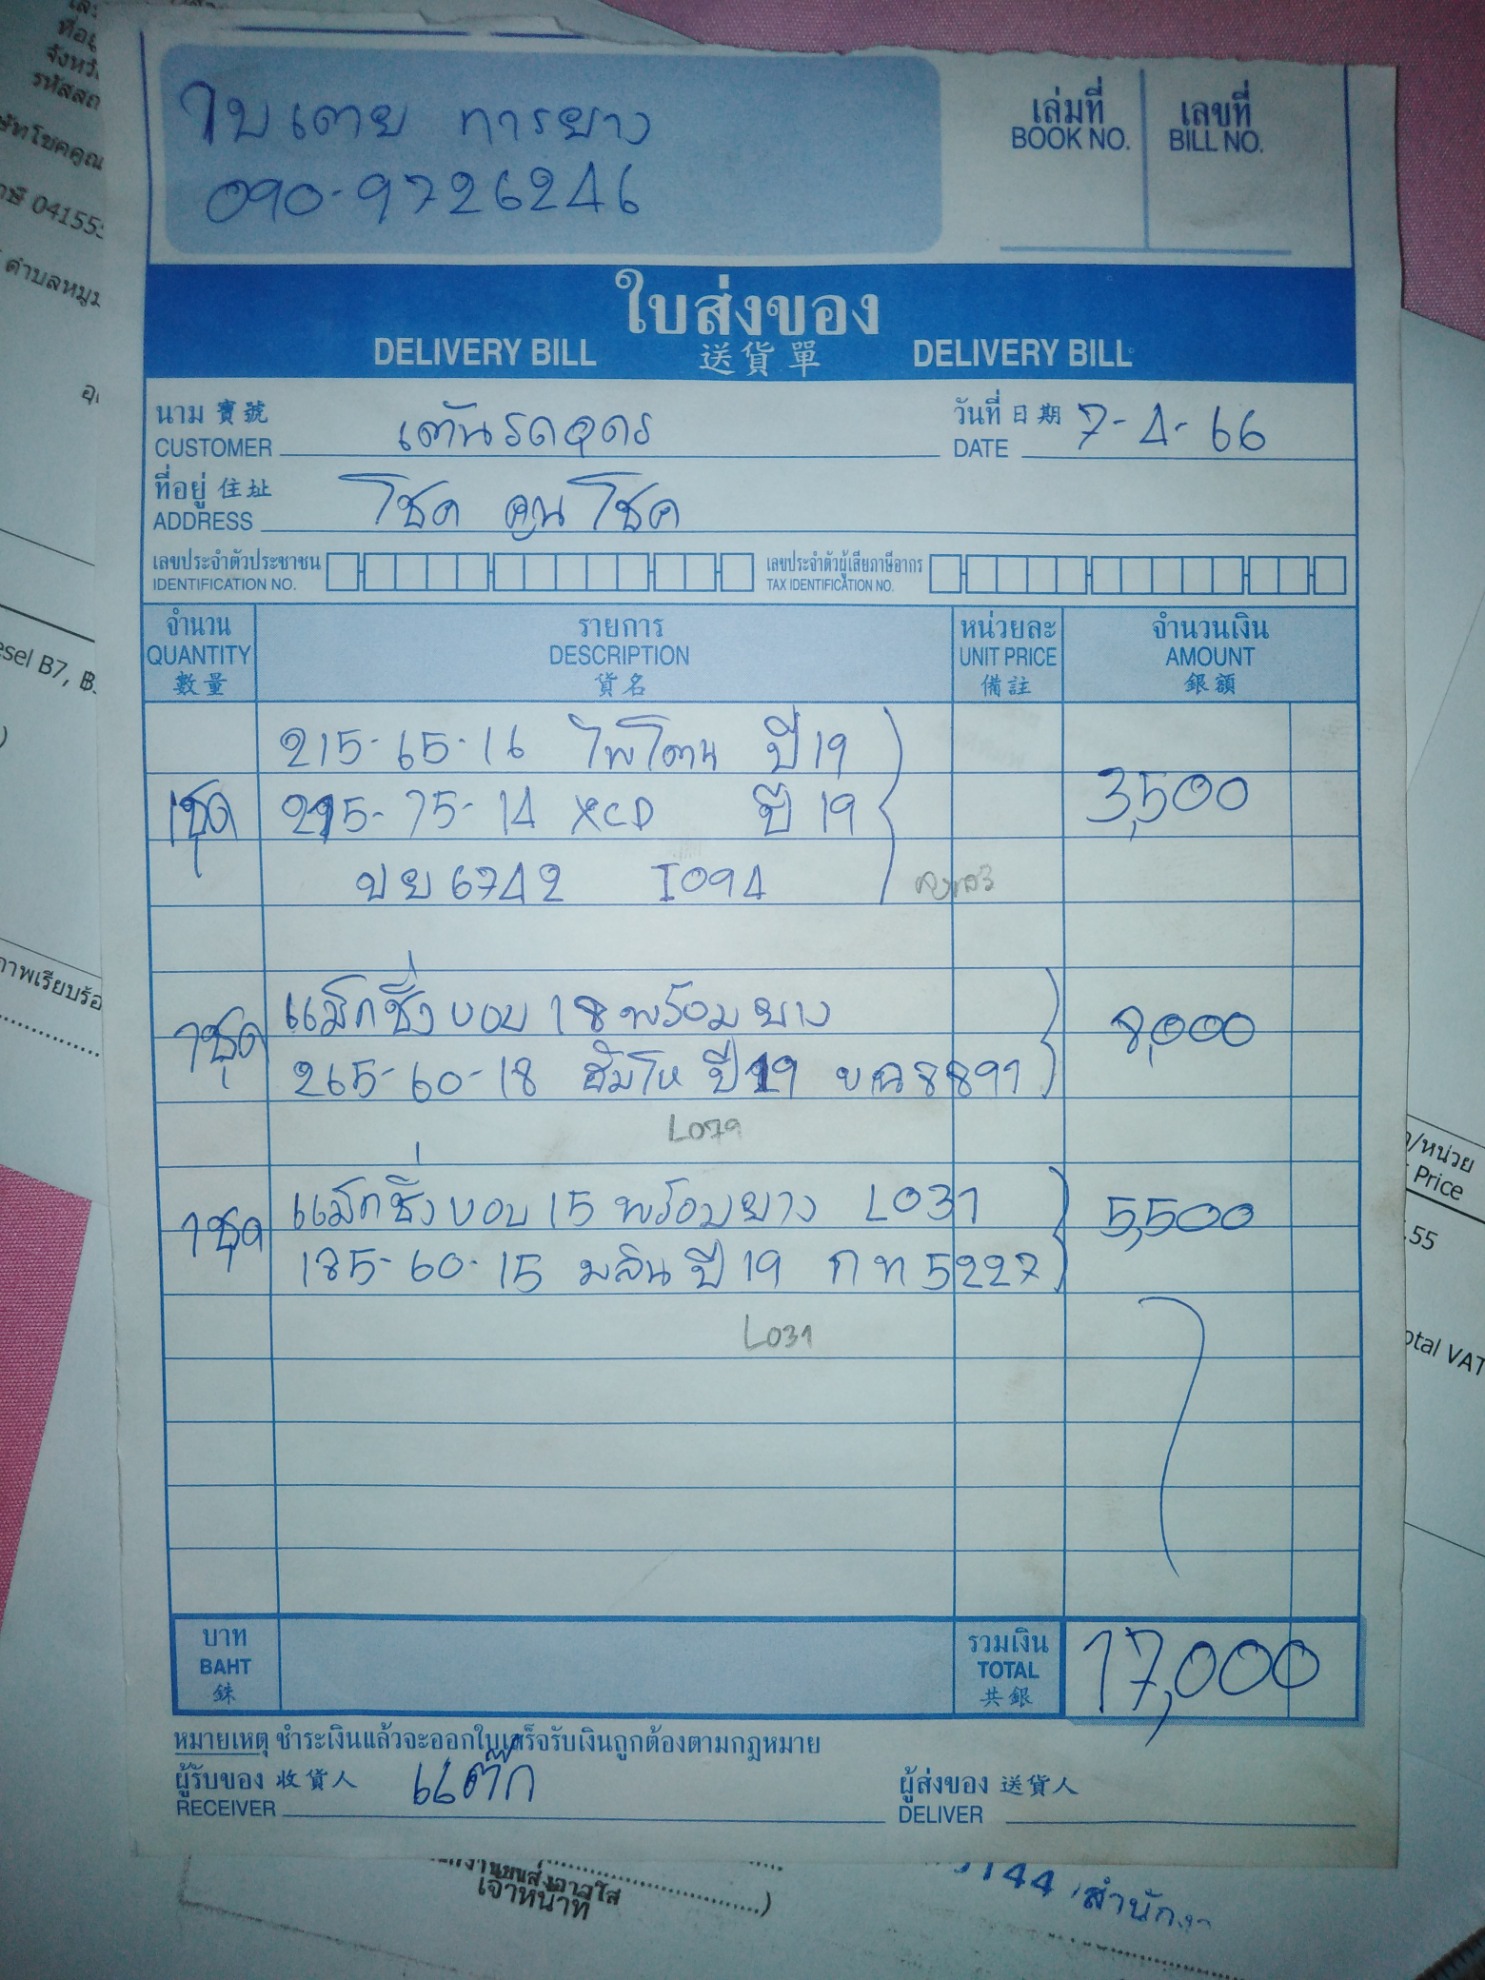 ใบเตย การยาง
090-9726246
เล่มที่
BOOK NO.
เลขที่
BILL NO.
ใบส่งของ
DELIVERY BILL 送貨單 DELIVERY BILL
นาม 寶號 วันที่ 日期 7-4-66
CUSTOMER เต้นรถอุดร DATE
ที่อยู่ 住址
ADDRESS โชค คูณ โชค
เลขประจำตัวประชาชน เลขประจำตัวผู้เสียภาษีอากร
IDENTIFICATION NO. TAX IDENTIFICATION NO.
จำนวน รายการ หน่วยละ จำนวนเงิน
QUANTITY DESCRIPTION UNIT PRICE AMOUNT
數量 貨名 備註 銀額
215-65-16 ไพโตน ปี 19
1ชุด 215-75-14 XCD ปี 19 3,500
บย 6742 I094
แม็กซิ่ง ขอบ 18 พร้อม ยาง
1ชุด 8,000
265-60-18 ฮัมโห ปี 19 ขฉ 8891
L079
แม็กซิ่ง ขอบ 15 พร้อมยาง L031
1ชุด 5,500
185-60-15 มลิน ปี 19 กท 5227
L031
บาท รวมเงิน
BAHT TOTAL 17,000
銖 共銀
หมายเหตุ ชำระเงินแล้วจะออกใบเสร็จรับเงินถูกต้องตามกฎหมาย
ผู้รับของ 收貨人 แต๊ก ผู้ส่งของ 送貨人
RECEIVER DELIVER
เจ้าหน้าที่
144
esel B7, B
/หน่วย
Price
.55
otal VAT